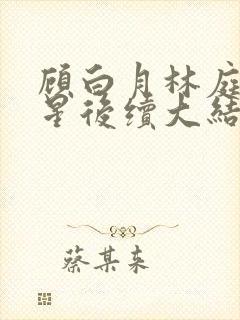 顾白月林庭
星後續大結
蔡某来